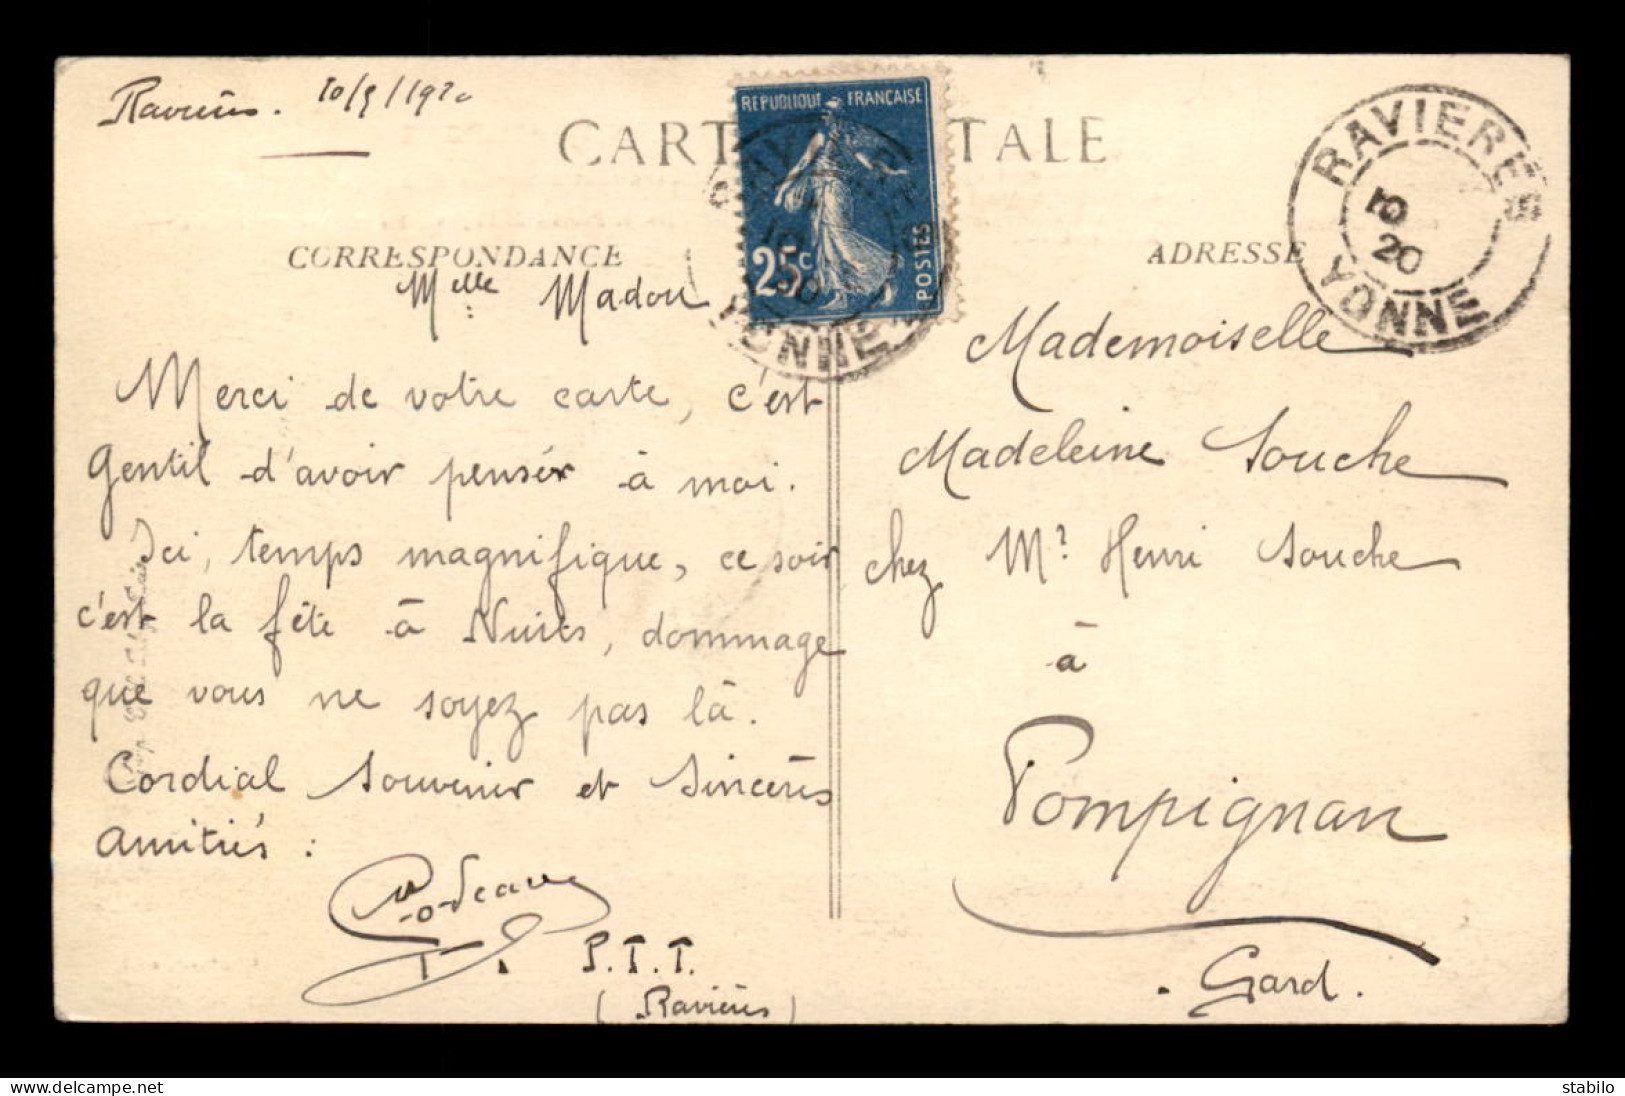 Ravières. 10/9/1920
CARTE POSTALE
REPUBLIQUE FRANÇAISE
25c
POSTES
YONNE
RAVIERES
20
YONNE
CORRESPONDANCE
ADRESSE
Melle Madou
Merci de votre carte, c'est
gentil d'avoir pensér à moi.
Ici, temps magnifique, ce soir
c'est la fête à Nuits, dommage
que vous ne soyez pas là.
Cordial souvenir et sincères
amitiés :
P.T.T.
(Ravières)
Mademoiselle
Madeleine Souche
chez Mr Henri Souche
à
Pompignan
Gard.
stabilo
www.delcampe.net